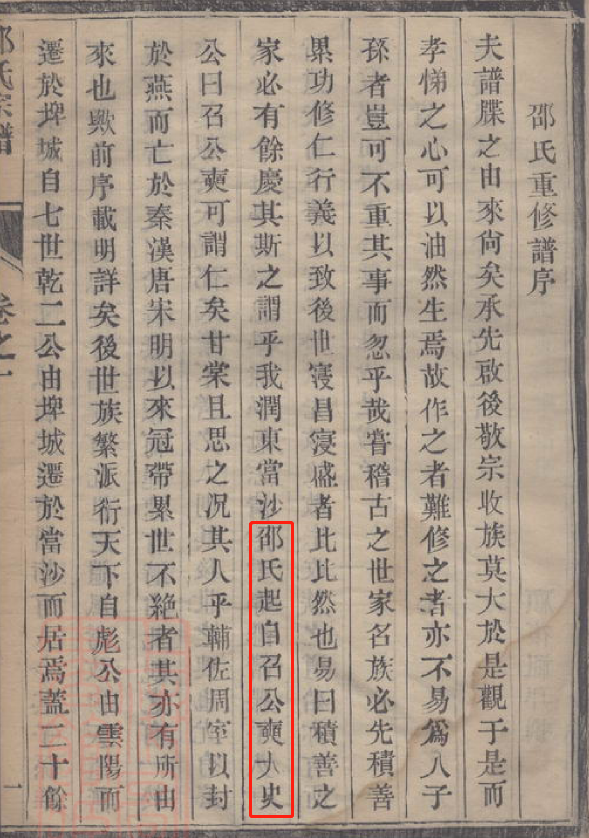 邵氏重修譜序
夫譜牒之由來尙矣承先啟後敬宗收族莫大於是觀于是而
孝悌之心可以油然生焉故作之者難修之者亦不易爲人子
孫者豈可不重其事而忽乎哉嘗稽古之世家名族必先積善
累功修仁行義以致後世寖昌寖盛者比比然也易曰積善之
家必有餘慶其斯之謂乎我潤東當沙邵氏起自召公奭大史
公曰召公奭可謂仁矣甘棠且思之况其人乎輔佐周室以封
於燕而亡於秦漢唐宋明以來冠帶累世不絕者其亦有所由
來也歟前序載明詳矣後世族繁派衍天下自彪公由雲陽而
遷於埤城自七世乾二公由埤城遷於當沙而居焉蓋二十餘
邵氏宗譜
卷之一
一